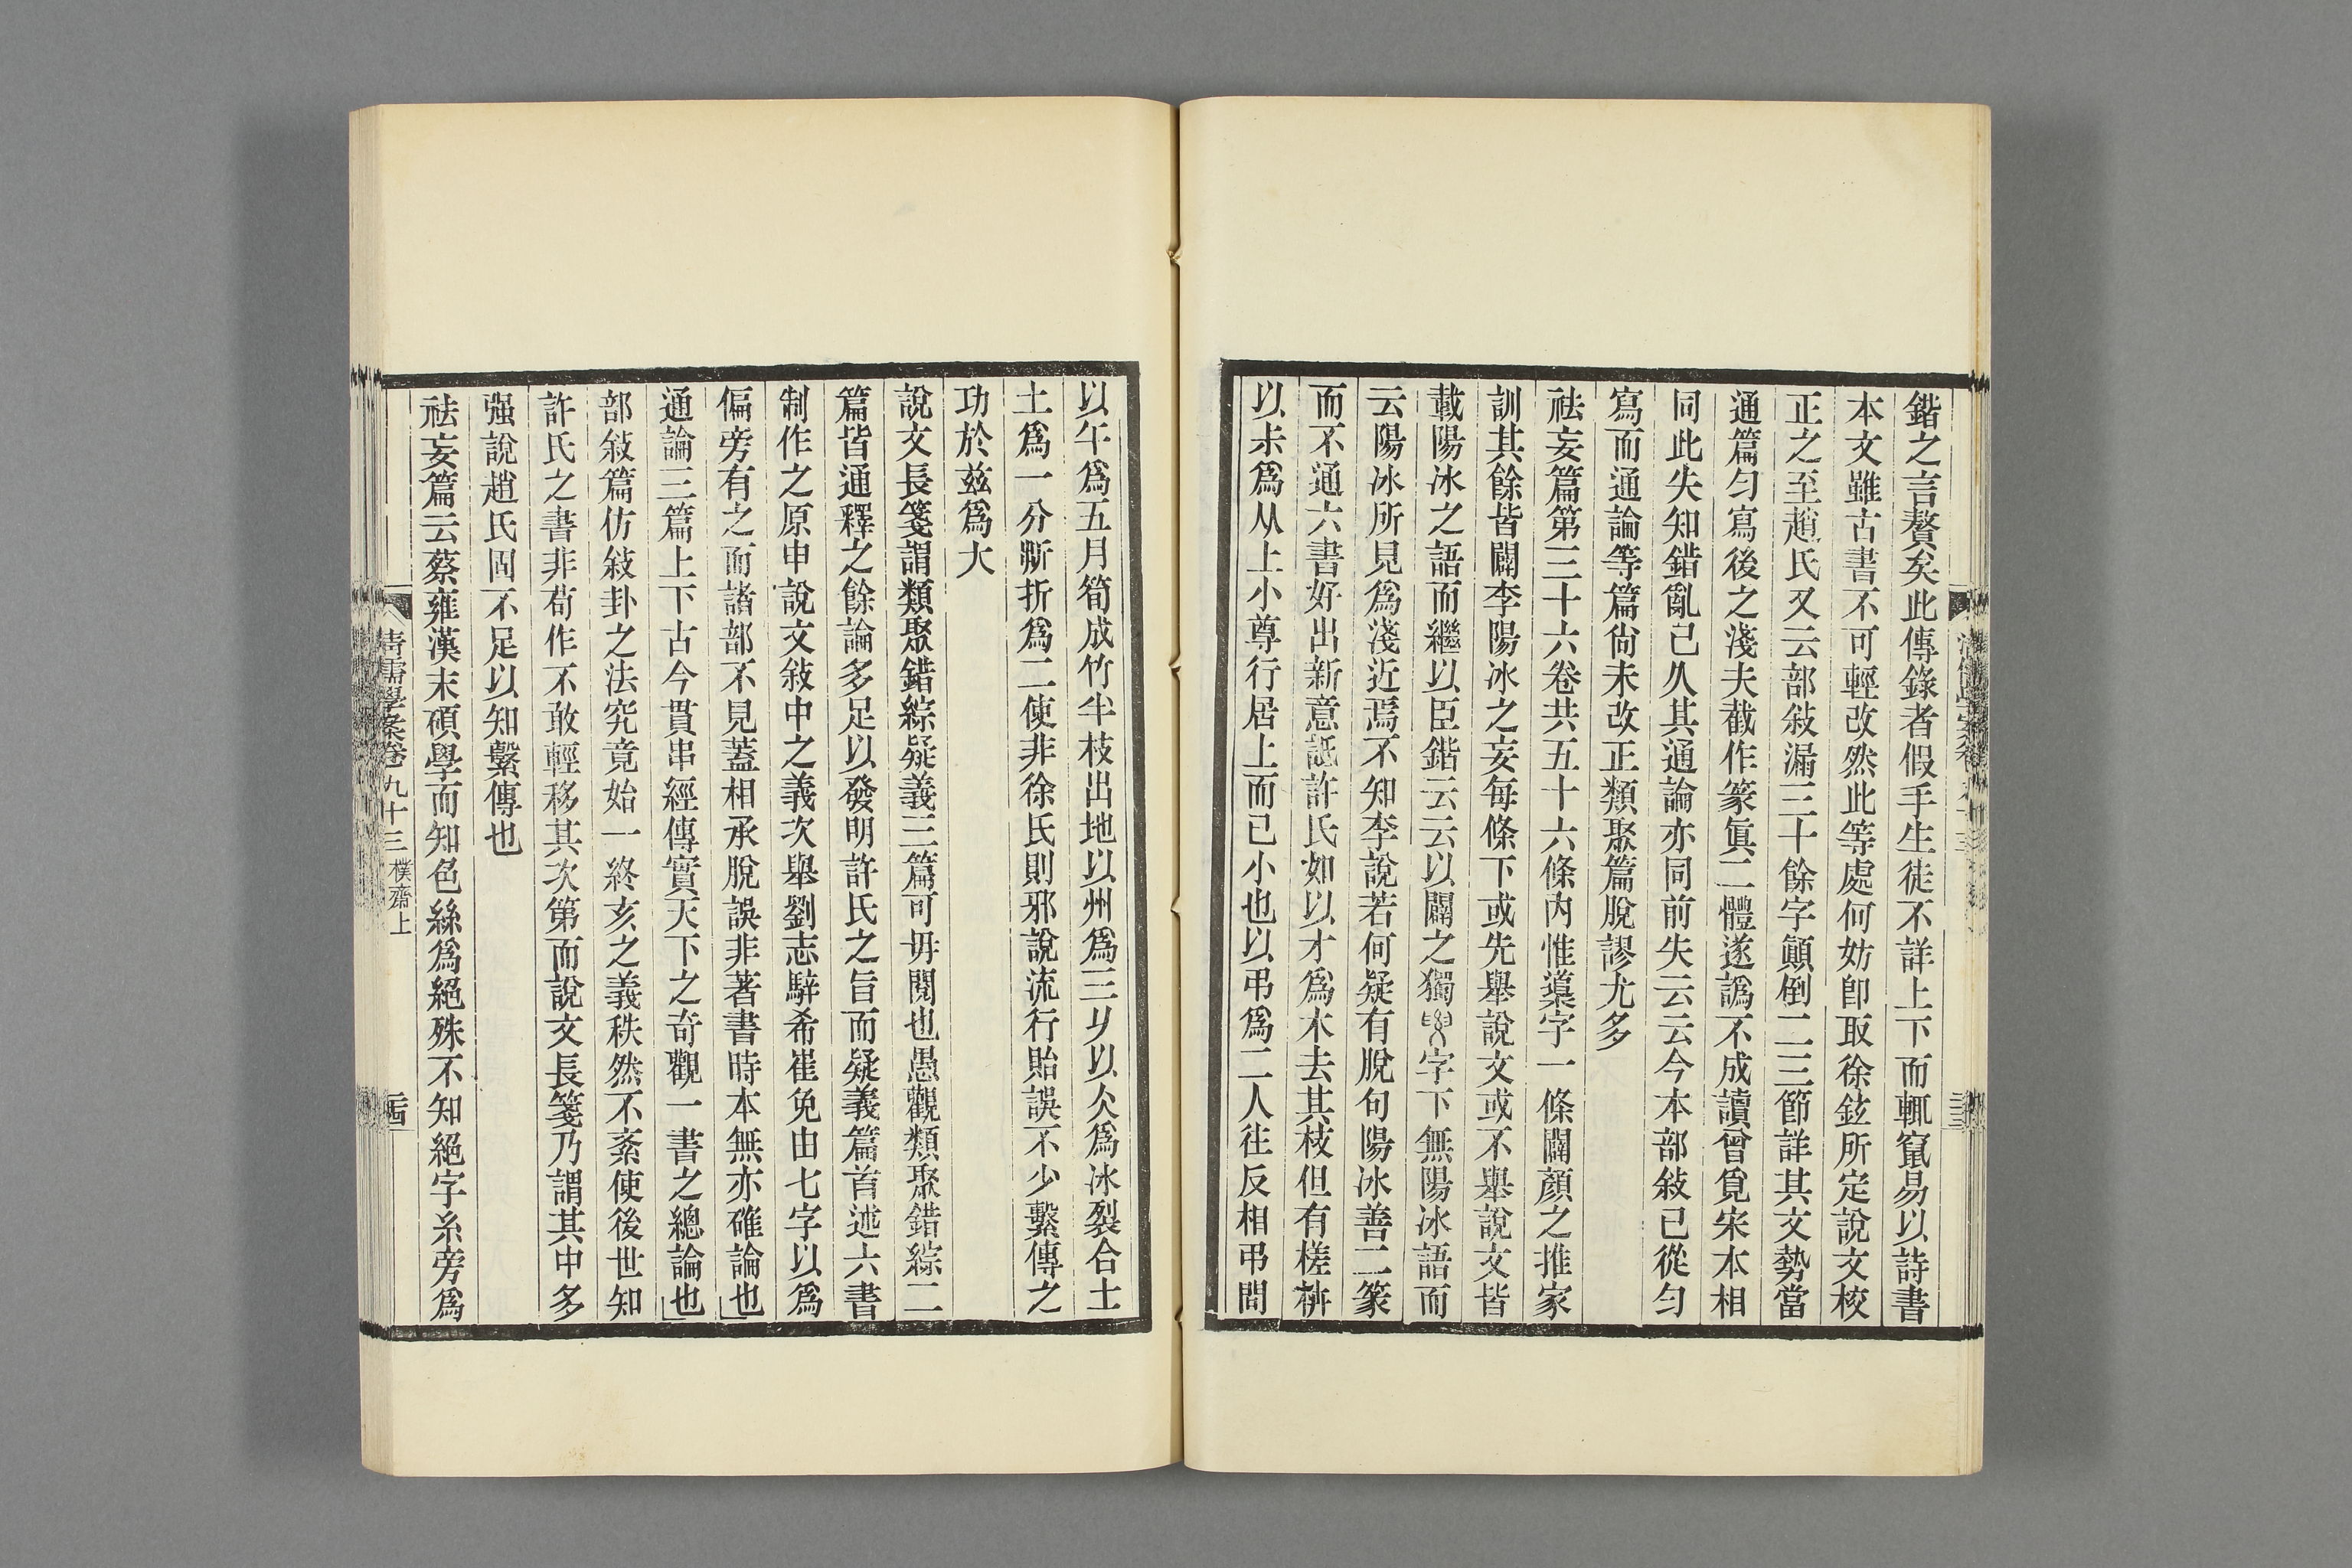 鍇之言贅矣此傳錄者假手生徒不詳上下而輒竄易以詩書
本文雖古書不可輕改然此等處何妨卽取徐鉉所定說文校
正之至趙氏又云部敍漏三十餘字顚倒二三節詳其文勢當
通篇勻寫後之淺夫截作篆眞二體遂譌不成讀曾覓宋本相
同此失知錯亂已久其通論亦同前失云云今本部敍已從勻
寫而通論等篇尙未改正類聚篇脫謬尤多
祛妄篇第三十六卷共五十六條內惟䆃字一條闢顏之推家
訓其餘皆闢李陽冰之妄每條下或先舉說文或不舉說文皆
載陽冰之語而繼以臣鍇云云以闢之獨字下無陽冰語而
云陽冰所見爲淺近焉不知李說若何疑有脫句陽冰善二篆
而不通六書好出新意詆許氏如以才爲木去其枝但有槎枿
以尗爲从上小尊行居上而已小也以弔爲二人往反相弔問
以午爲五月筍成竹半枝出地以州爲三刀以仌爲冰裂合土
土爲一分斷折爲二使非徐氏則邪說流行貽誤不少繫傳之
功於茲爲大
說文長箋謂類聚錯綜疑義三篇可毋閱也愚觀類聚錯綜二
篇皆通釋之餘論多足以發明許氏之旨而疑義篇首述六書
制作之原申說文敍中之義次舉劉志騂希崔免由七字以爲
偏旁有之而諸部不見蓋相承脫誤非著書時本無亦確論也
通論三篇上下古今貫串經傳實天下之奇觀一書之總論也
部敍篇仿敍卦之法究竟始一終亥之義秩然不紊使後世知
許氏之書非苟作不敢輕移其次第而說文長箋乃謂其中多
强說趙氏固不足以知繫傳也
祛妄篇云蔡雍漢末碩學而知色絲爲絕殊不知絕字糸旁爲
清儒學案卷九十三 樸齋上
二十四